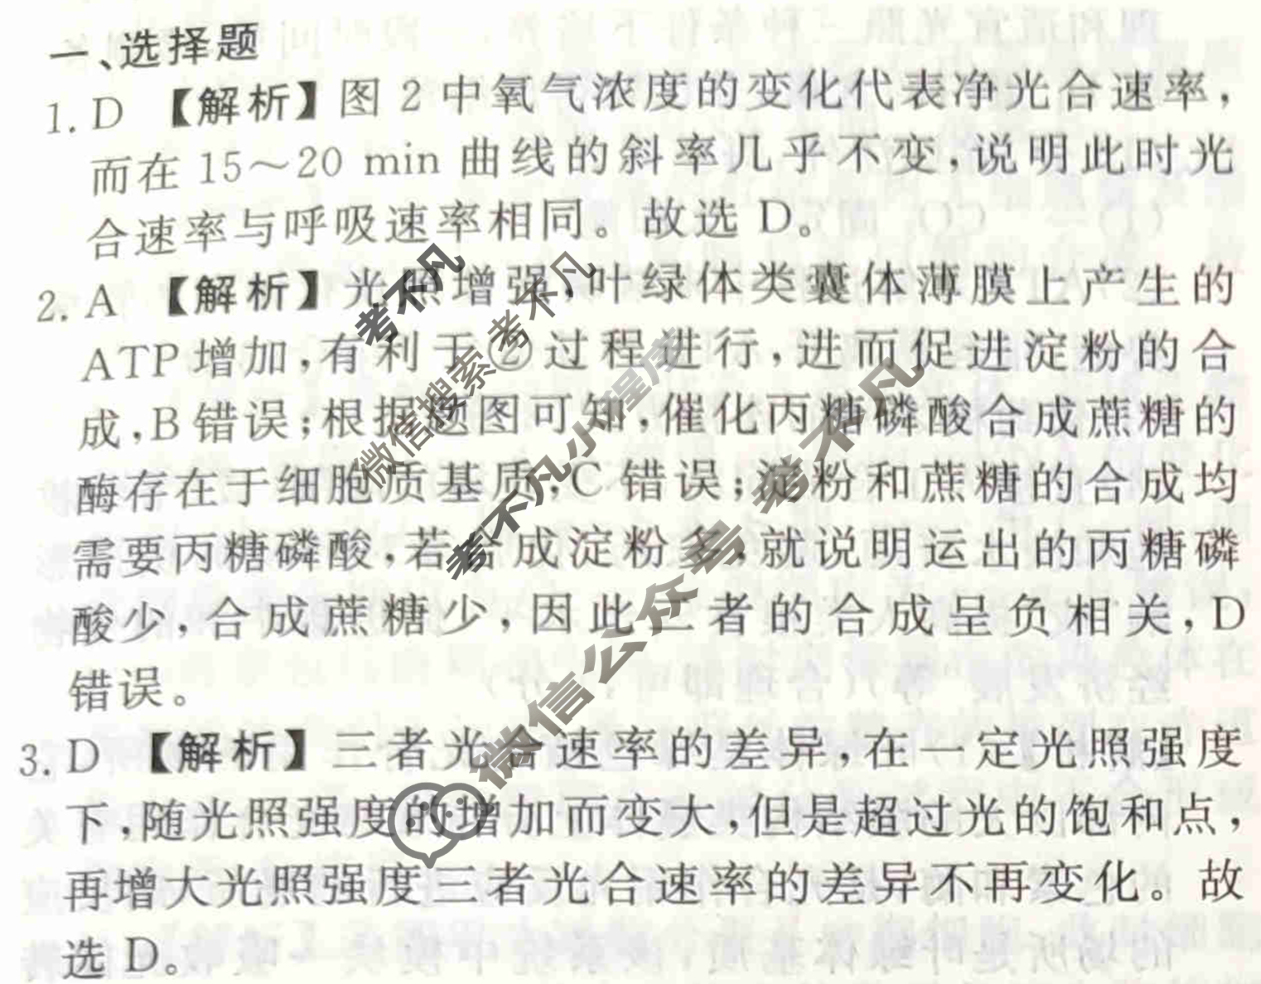 一、选择题
1. D 【解析】图 2 中氧气浓度的变化代表净光合速率，
而在 15～20 min 曲线的斜率几乎不变，说明此时光
合速率与呼吸速率相同。故选 D。
2. A 【解析】光照增强，叶绿体类囊体薄膜上产生的
ATP 增加，有利于②过程进行，进而促进淀粉的合
成，B 错误；根据题图可知，催化丙糖磷酸合成蔗糖的
酶存在于细胞质基质，C 错误；淀粉和蔗糖的合成均
需要丙糖磷酸，若合成淀粉多，就说明运出的丙糖磷
酸少，合成蔗糖少，因此二者的合成呈负相关，D
错误。
3. D 【解析】三者光合速率的差异，在一定光照强度
下，随光照强度的增加而变大，但是超过光的饱和点，
再增大光照强度三者光合速率的差异不再变化。故
选 D。
考不凡
微信搜索 考不凡
考不凡小程序
微信公众号 考不凡